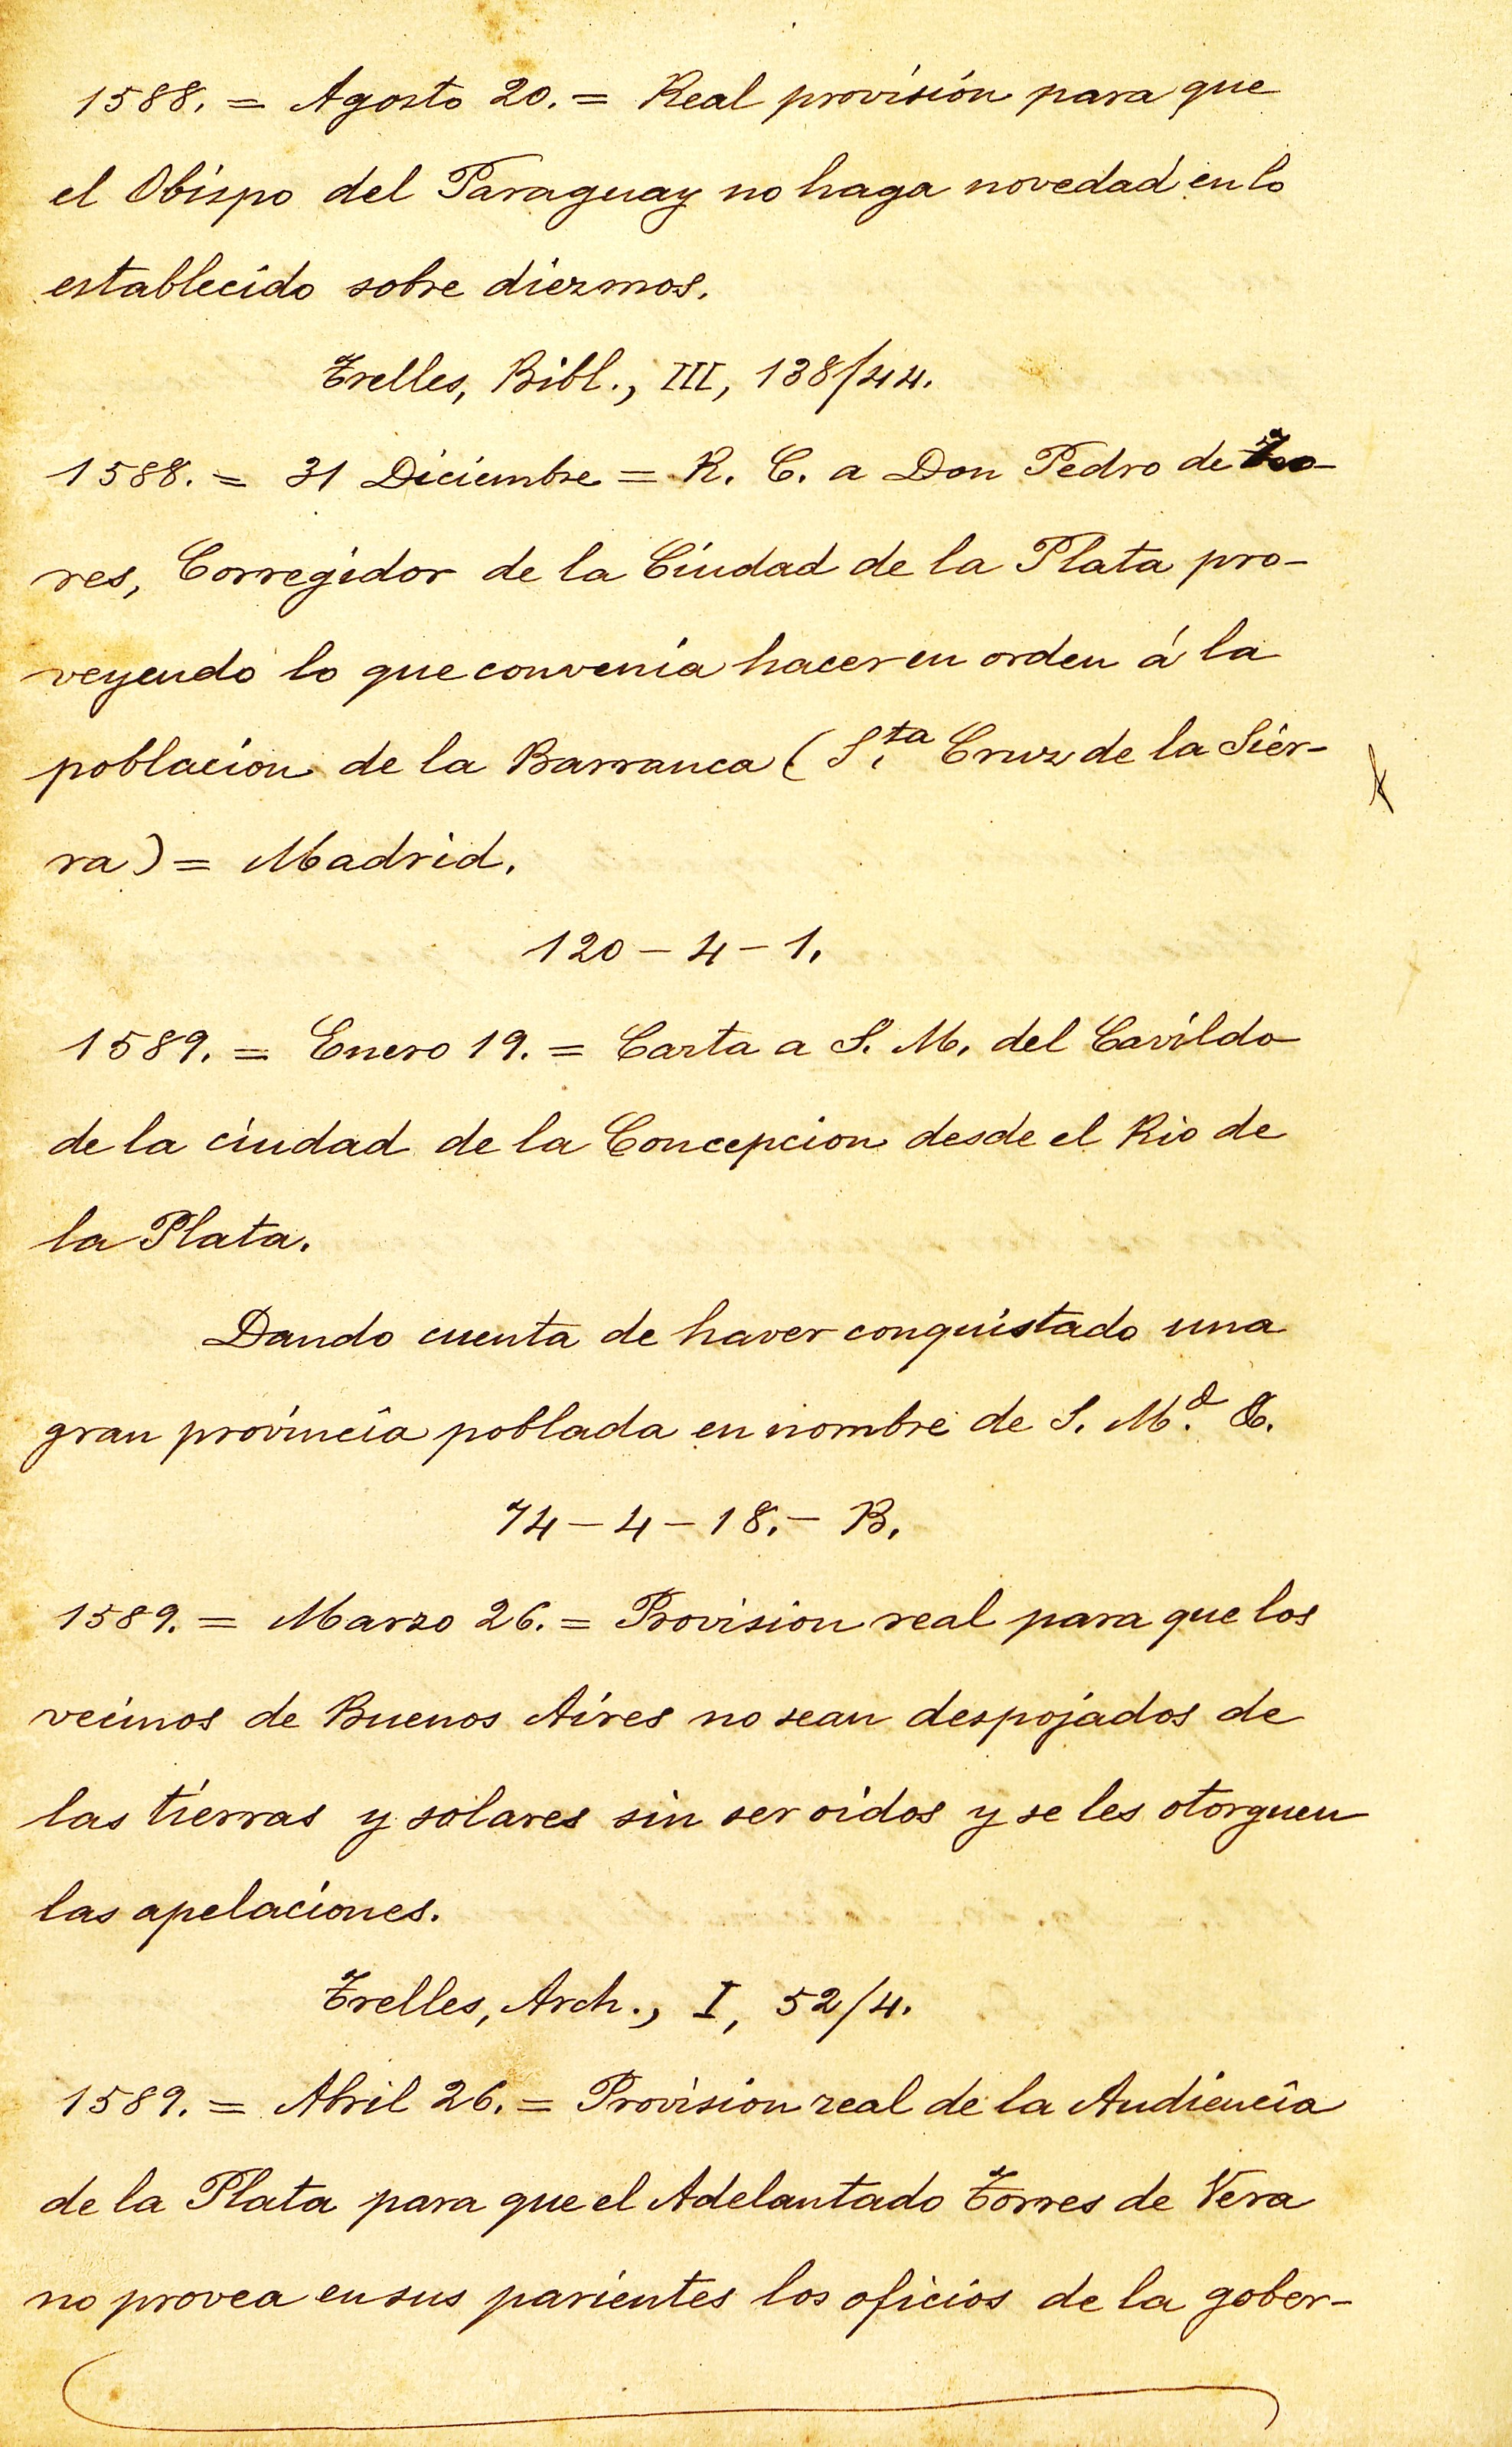 1588. = Agosto 20. = Real provisión para que
el Obispo del Paraguay no haga novedad en lo
establecido sobre diezmos.
Trelles, Bibl., III, 138/44.
1588. = 31 Diciembre = R. C. a Don Pedro de
res, Corregidor de la Ciudad de la Plata pro-
veyendo lo que convenia hacer en orden á la
poblacion de la Barranca (S.ta Cruz de la Sier-
ra) = Madrid.
120 - 4 - 1.
1589. = Enero 19. = Carta a S. M. del Cavildo
de la ciudad de la Concepcion desde el Rio de
la Plata.
Dando cuenta de haver conquistado una
gran provincia poblada en nombre de S. M.d &.
74 - 4 - 18. - B.
1589. = Marzo 26. = Provision real para que los
vecinos de Buenos Aires no sean despojados de
las tierras y solares sin ser oidos y se les otorguen
las apelaciones.
Trelles, Arch., I, 52/4.
1589. = Abril 26. = Provision real de la Audiencia
de la Plata para que el Adelantado Torres de Vera
no provea en sus parientes los oficios de la gober-